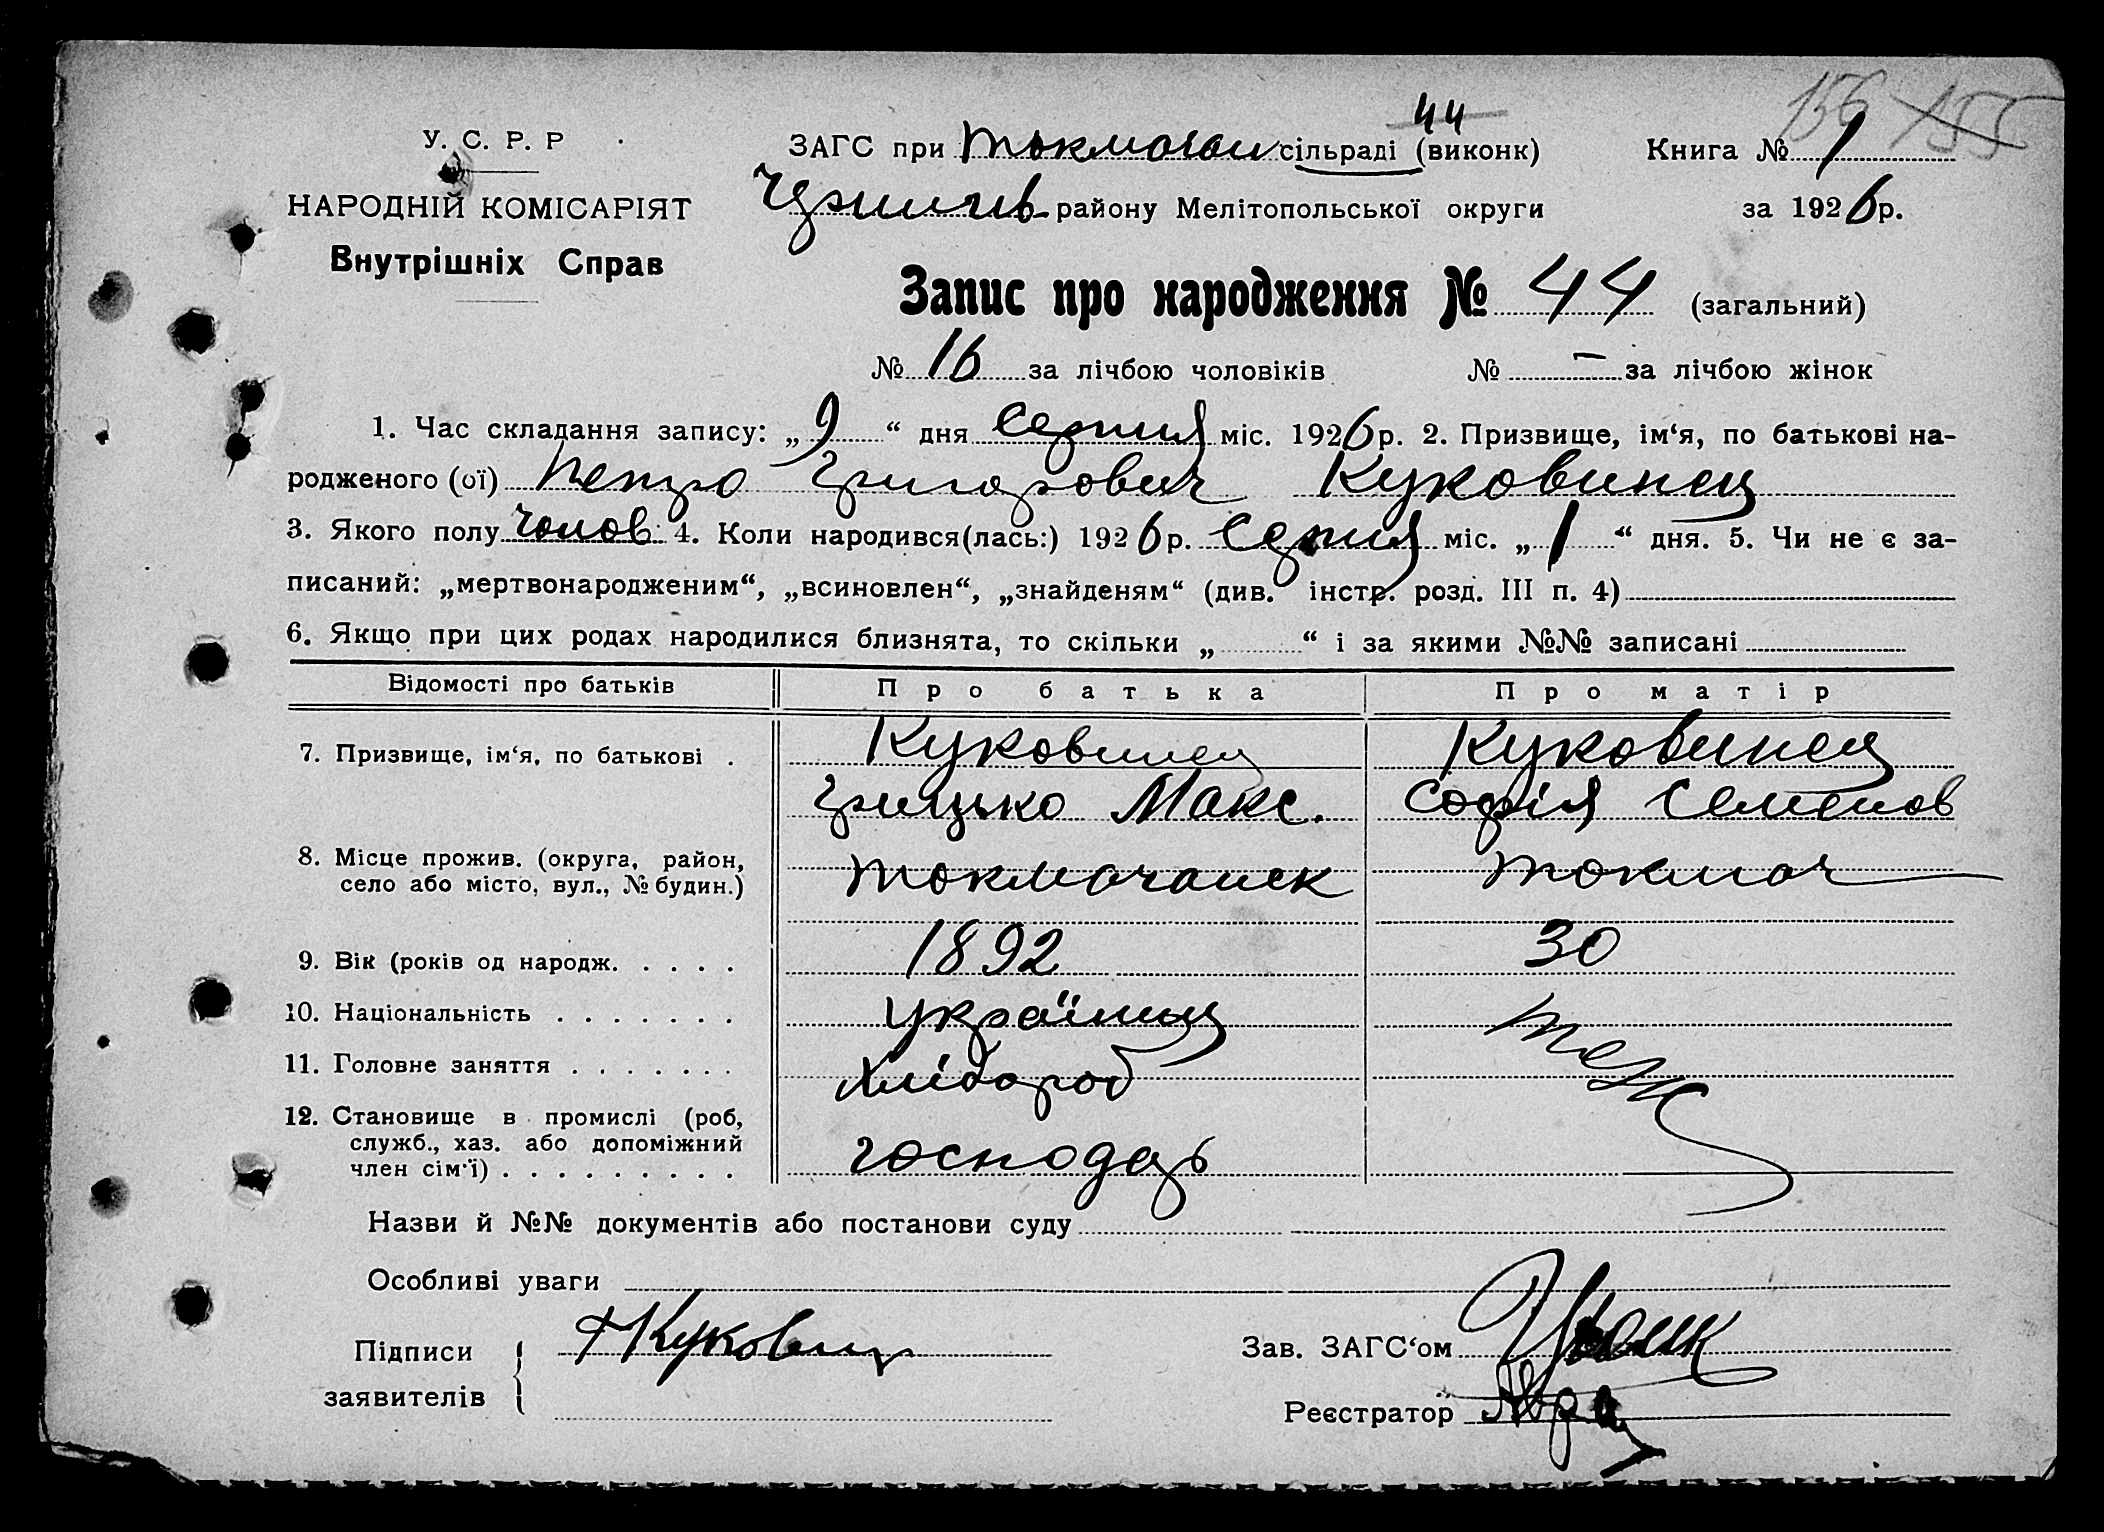 156 155
44
У. С. Р. Р
НАРОДНІЙ КОМІСАРІЯТ
Внутрішніх Справ
ЗАГС при Токмачан сільраді (виконк)
Книга № 1
району Мелітопольської округи
за 1926 р.
Запис про народження № 44 (загальний)
№ 16 за лічбою чоловіків № — за лічбою жінок
1. Час складання запису: „ 9 “ дня серпня міс. 1926 р. 2. Призвище, ім‘я, по батькові на-
родженого (ої) Петро Григорович Куковинец
3. Якого полу чолов 4. Коли народився(лась:) 1926 р. серпня міс. „ 1 “ дня. 5. Чи не є за-
писаний: „мертвонародженим“, „всиновлен“, „знайденям“ (див. інстр. розд. III п. 4)
6. Якщо при цих родах народилися близнята, то скільки „ “ і за якими №№ записані
Відомості про батьків Про батька Про матір
7. Призвище, ім‘я, по батькові . Куковинец Куковинец
Грицько Макс. Софія Семенов
8. Місце прожив. (округа, район,
село або місто, вул., № будин.) Токмачанск Токмач
9. Вік (років од народж. . . . . 1892 30
10. Національність . . . . . . . українец теж
11. Головне заняття . . . . . . . хлібороб
12. Становище в промислі (роб,
служб., хаз. або допоміжний
член сім‘ї) . . . . . . . . . господарь
Назви й №№ документів або постанови суду
Особливі уваги
Підписи
заявителів
Куковинец
Зав. ЗАГС‘ом
Реєстратор